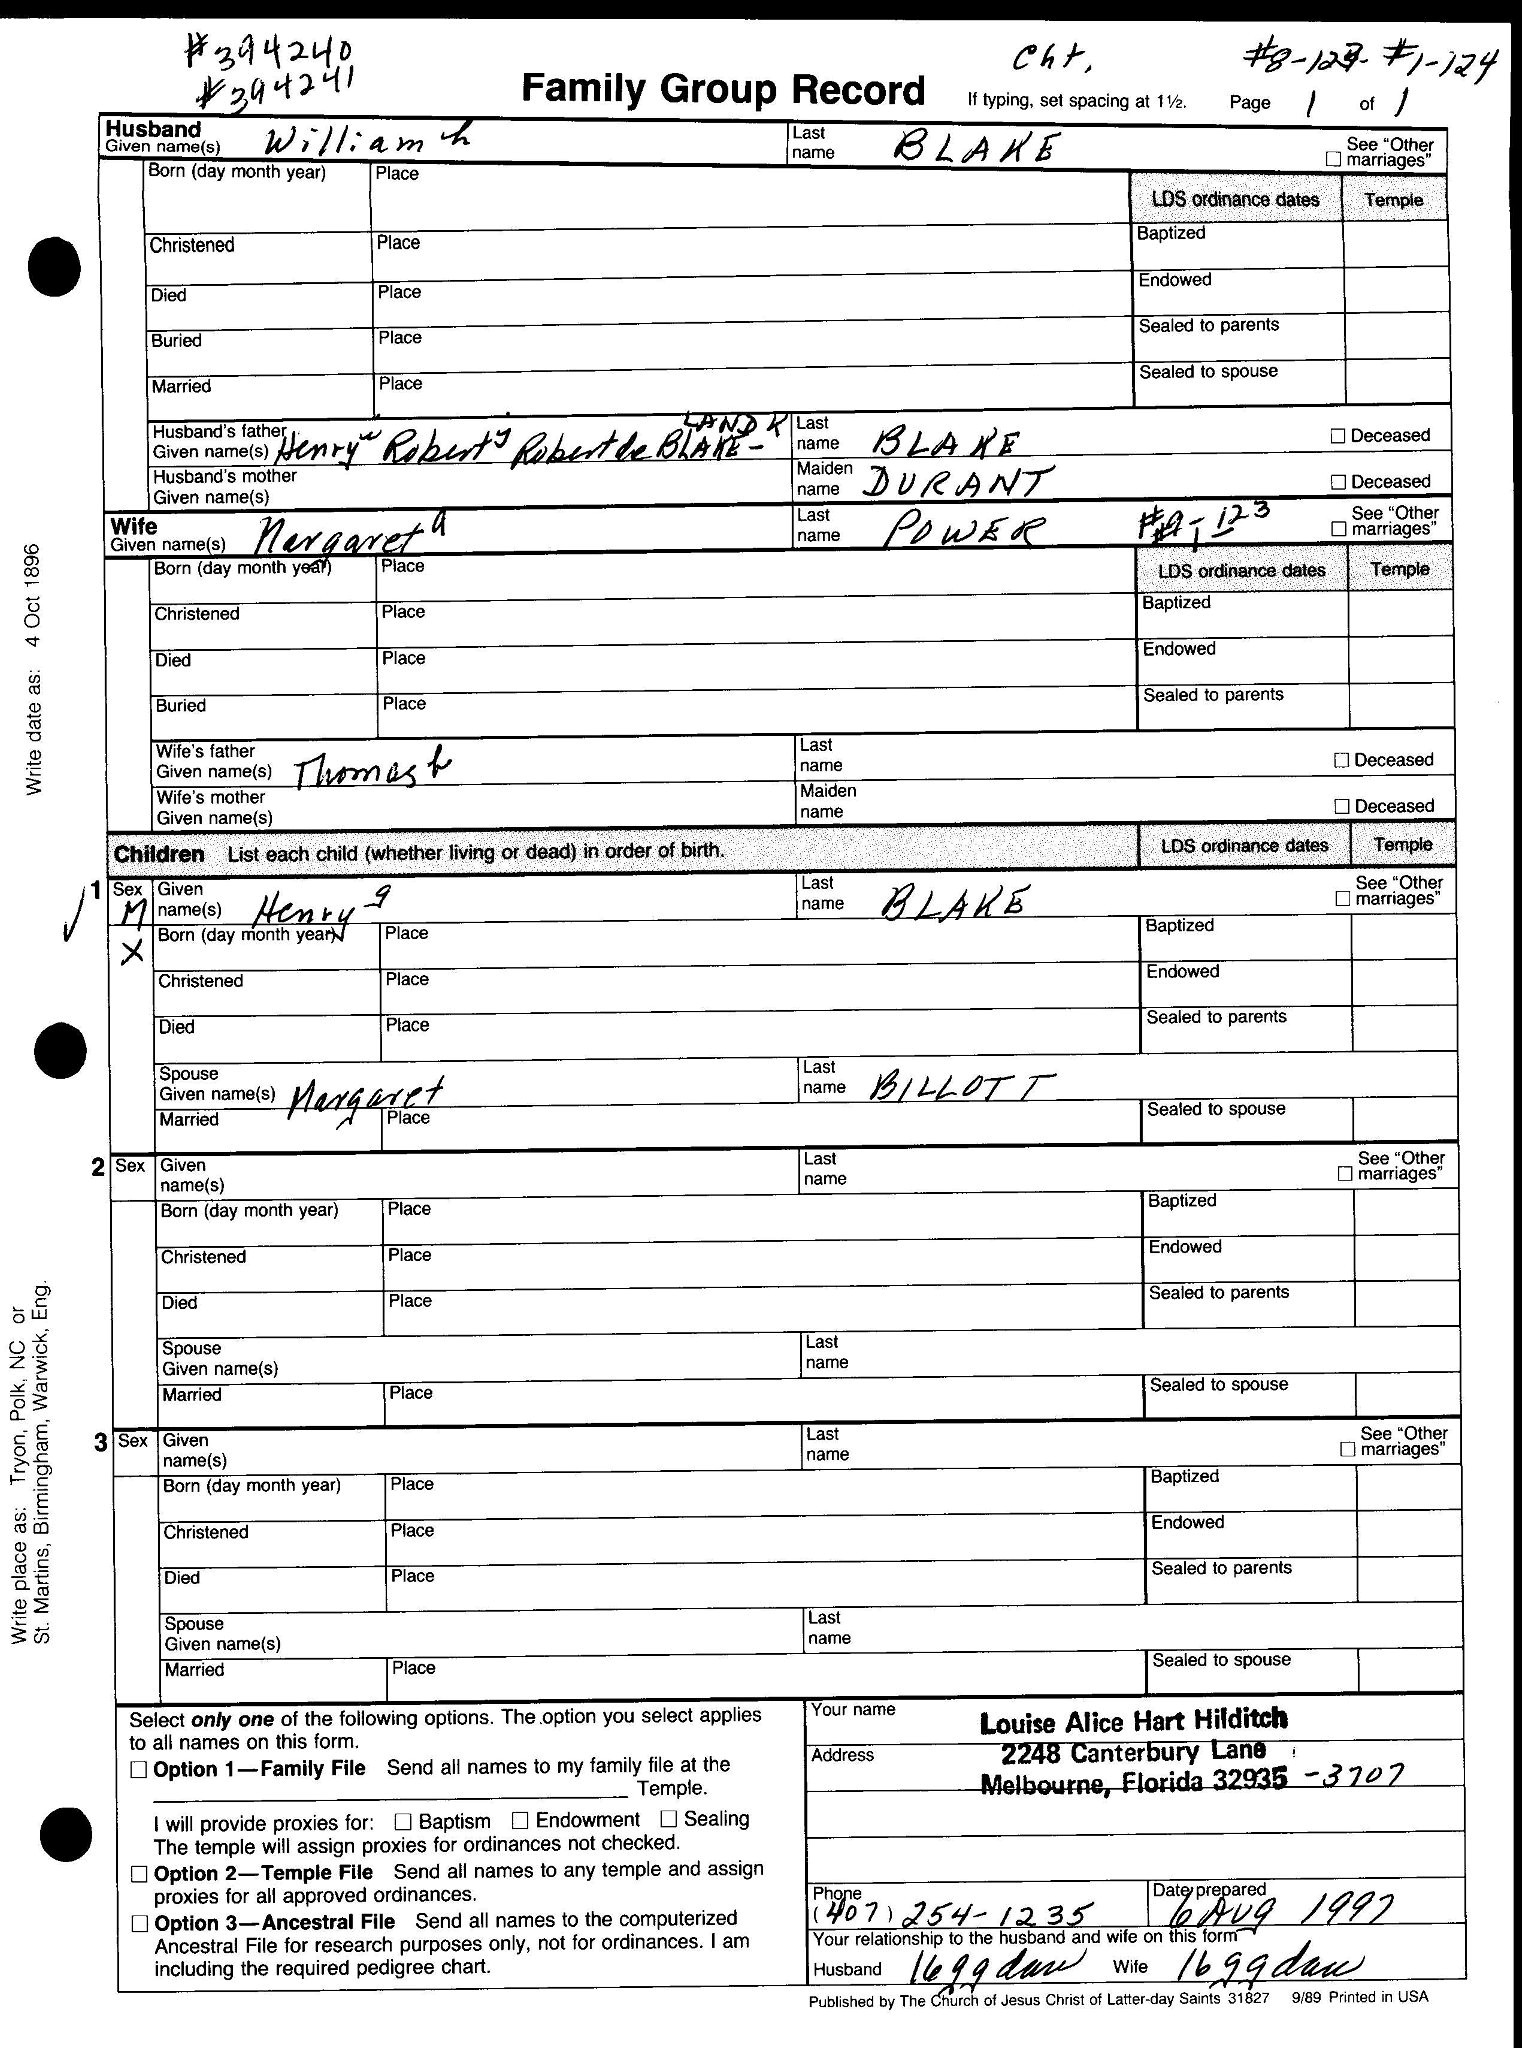 #394240
#394241
Cht, #8-123- #1-124
Family Group Record If typing, set spacing at 1½. Page 1 of 1
Husband
Given name(s) William h Last name BLAKE See "Other marriages"
Born (day month year) Place LDS ordinance dates Temple
Christened Place Baptized
Died Place Endowed
Buried Place Sealed to parents
Married Place Sealed to spouse
LAND K
Husband's father
Given name(s) Henry Robert Robert de BLAKE- Last name BLAKE Deceased
Husband's mother
Given name(s) Maiden name DURANT Deceased
Wife
Given name(s) Margaret Last name POWER See "Other marriages"
Born (day month year) Place LDS ordinance dates Temple
Christened Place Baptized
Died Place Endowed
Buried Place Sealed to parents
Wife's father
Given name(s) Thomas Last name Deceased
Wife's mother
Given name(s) Maiden name Deceased
Children List each child (whether living or dead) in order of birth. LDS ordinance dates Temple
1 Sex M Given name(s) Henry Last name BLAKE See "Other marriages"
X Born (day month year) Place Baptized
Christened Place Endowed
Died Place Sealed to parents
Spouse
Given name(s) Margaret Last name BILLOTT
Married Place Sealed to spouse
2 Sex Given name(s) Last name See "Other marriages"
Born (day month year) Place Baptized
Christened Place Endowed
Died Place Sealed to parents
Spouse
Given name(s) Last name
Married Place Sealed to spouse
3 Sex Given name(s) Last name See "Other marriages"
Born (day month year) Place Baptized
Christened Place Endowed
Died Place Sealed to parents
Spouse
Given name(s) Last name
Married Place Sealed to spouse
Select only one of the following options. The option you select applies
to all names on this form.
Option 1—Family File Send all names to my family file at the
Temple.
I will provide proxies for: Baptism Endowment Sealing
The temple will assign proxies for ordinances not checked.
Option 2—Temple File Send all names to any temple and assign
proxies for all approved ordinances.
Option 3—Ancestral File Send all names to the computerized
Ancestral File for research purposes only, not for ordinances. I am
including the required pedigree chart.
Your name Louise Alice Hart Hilditch
Address 2248 Canterbury Lane
Melbourne, Florida 32935 -3707
Phone (407) 254-1235 Date prepared 6 Aug 1997
Your relationship to the husband and wife on this form
Husband 16 gg dau Wife 16 gg dau
Published by The Church of Jesus Christ of Latter-day Saints 31827 9/89 Printed in USA
Write date as: 4 Oct 1896
Write place as: Tryon, Polk, NC or
St. Martins, Birmingham, Warwick, Eng.